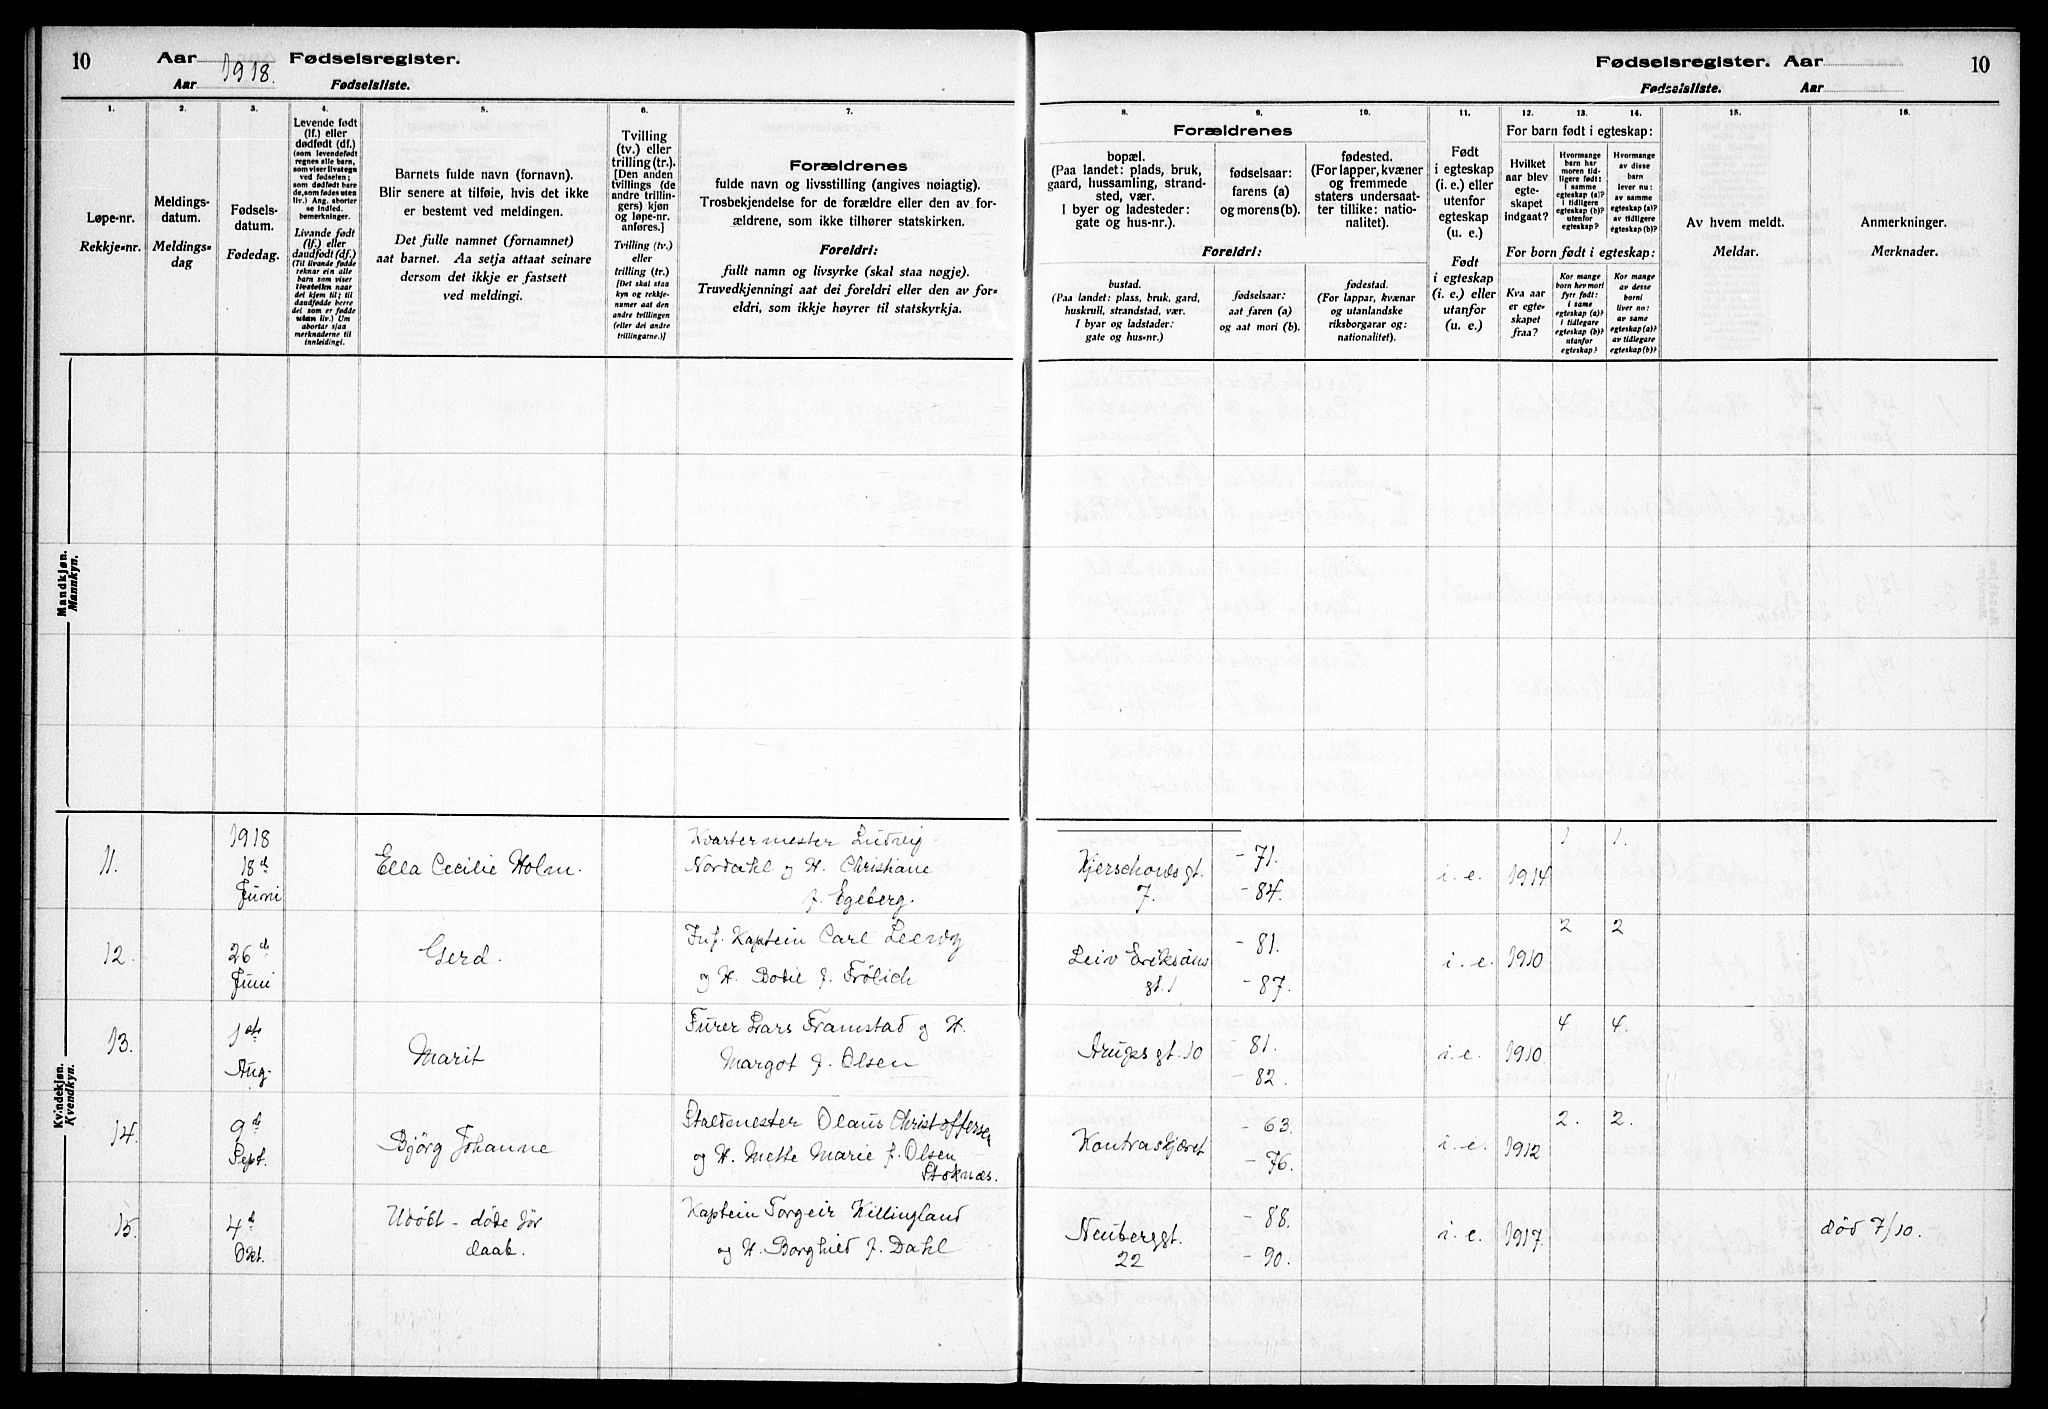 10
Aar 1918. Fødselsregister.
Aar Fødselsliste.
1.
2.
3.
4.
5.
6.
7.
Løpe-nr.
Rekkje-nr.
Meldings-
datum.
Meldings-
dag
Fødsels-
datum.
Fødedag.
Levende født
(lf.) eller
dødfødt (df.)
(som levendefødt
regnes alle barn,
som viser livstegn
ved fødselen;
som dødfødt bare
de, som fødes uten
liv.) Ang. aborter
se indled.
bemerkninger.
Livande født
(lf.) eller
daudfødt (df.)
(Til livande fødde
reknar ein alle
barn som viser
livsteikn naar
det kjem til; til
daudfødde berre
dei som er fødde
utan liv.) Um
abortar sjaa
merknaderne til
innleidingi.
Barnets fulde navn (fornavn).
Blir senere at tilføie, hvis det ikke
er bestemt ved meldingen.
Det fulle namnet (fornamnet)
aat barnet. Aa setja attaat seinare
dersom det ikkje er fastsett
ved meldingi.
Tvilling
(tv.) eller
trilling (tr.).
[Den anden
tvillings (de
andre trillin-
gers) kjøn
og løpe-nr.
anføres.]
Tvilling (tv.)
eller
trilling (tr.)
[Det skal staa
kyn og rekkje-
numer aat den
andre tvillingen
(eller dei andre
trillingarne.)]
Forældrenes
fulde navn og livsstilling (angives nøiagtig).
Trosbekjendelse for de forældre eller den av for-
ældrene, som ikke tilhører statskirken.
Foreldri:
fullt namn og livsyrke (skal staa nøgje).
Truvedkjenningi aat dei foreldri eller den av for-
eldri, som ikkje høyrer til statskyrkja.
Mandkjøn.
Mannkyn.
Kvindekjøn.
Kvendkyn.
11.
1918
18d
Juni
Ella Cecilie Holm.
Kvartermester Ludvig
Nordahl og H. Christiane
f. Egeberg.
12.
26 d
Juni
Gerd.
Inf. Kaptein Carl
og H. Bodil f. Frölich
13.
1ste
Aug.
Marit
Furer Lars Framstad og H.
Margot f. Olsen
14.
9 d
Sept.
Bjørg Johanne
Staldmester Olaus Christoffersen
og H. Mette Marie f. Olsen
Stoknæs.
15.
4 d
Okt.
Udöbt - döde för
daab.
Kaptein Torgeir Killingland
og H. Borghild f. Dahl
Fødselsregister. Aar
Fødselsliste. Aar
10
8.
9.
10.
11.
12.
13.
14.
15.
16.
Forældrenes
bopæl.
(Paa landet: plads, bruk,
gaard, hussamling, strand-
sted, vær.
I byer og ladesteder:
gate og hus-nr.).
fødselsaar:
farens (a)
og morens (b).
fødested.
(For lapper, kvæner
og fremmede
staters undersaat-
ter tillike: natio-
nalitet).
Foreldri:
bustad.
(Paa landet: plass, bruk, gard,
huskrull, strandstad, vær.
I byar og ladstader:
gate og hus-nr.)
fødselsaar:
aat faren (a)
og aat mori (b).
fødestad.
(For lappar, kvænar
og utanlandske
riksborgarar og:
nationalitet).
Født
i egteskap
(i. e.) eller
utenfor
egteskap
(u. e.)
Født
i egteskap
(i. e.) eller
utanfor
(u. e.)
For barn født i egteskap:
Hvilket
aar blev
egte-
skapet
indgaat?
Hvormange
barn har
moren tid-
ligere født:
i samme
egteskap (a)?
i tidligere
egteskap (b)?
utenfor
egteskap?
Hvormange
av disse
barn
lever nu:
av samme
egteskap (a)?
av tidligere
egteskap (b)?
For born født i egteskap:
Kva aar
er egte-
skapet
fraa?
Kor mange
born hev mori
fyrr født:
i same
egteskap (a)?
i tidlegare
egteskap (b)?
utanfor
egteskap?
Kor mange
av desse
borni
liver no:
av same
egteskap (a)?
av tidlegare
egteskap (b)?
Av hvem meldt.
Meldar.
Anmerkninger.
Merknader.
Kjerschows gt.
7.
- 71.
- 84.
i. e.
1914
1
1.
Leiv Eriksøns
gt. 1
- 81.
- 87.
i. e.
1910
2
2
Arups gt. 10
- 81.
- 82.
i. e.
1910
4
4.
Kontraskjæret
- 63.
- 76.
i. e.
1912
2.
2.
Neuberggt.
22
- 88.
- 90.
i. e.
1917.
död 7/10.